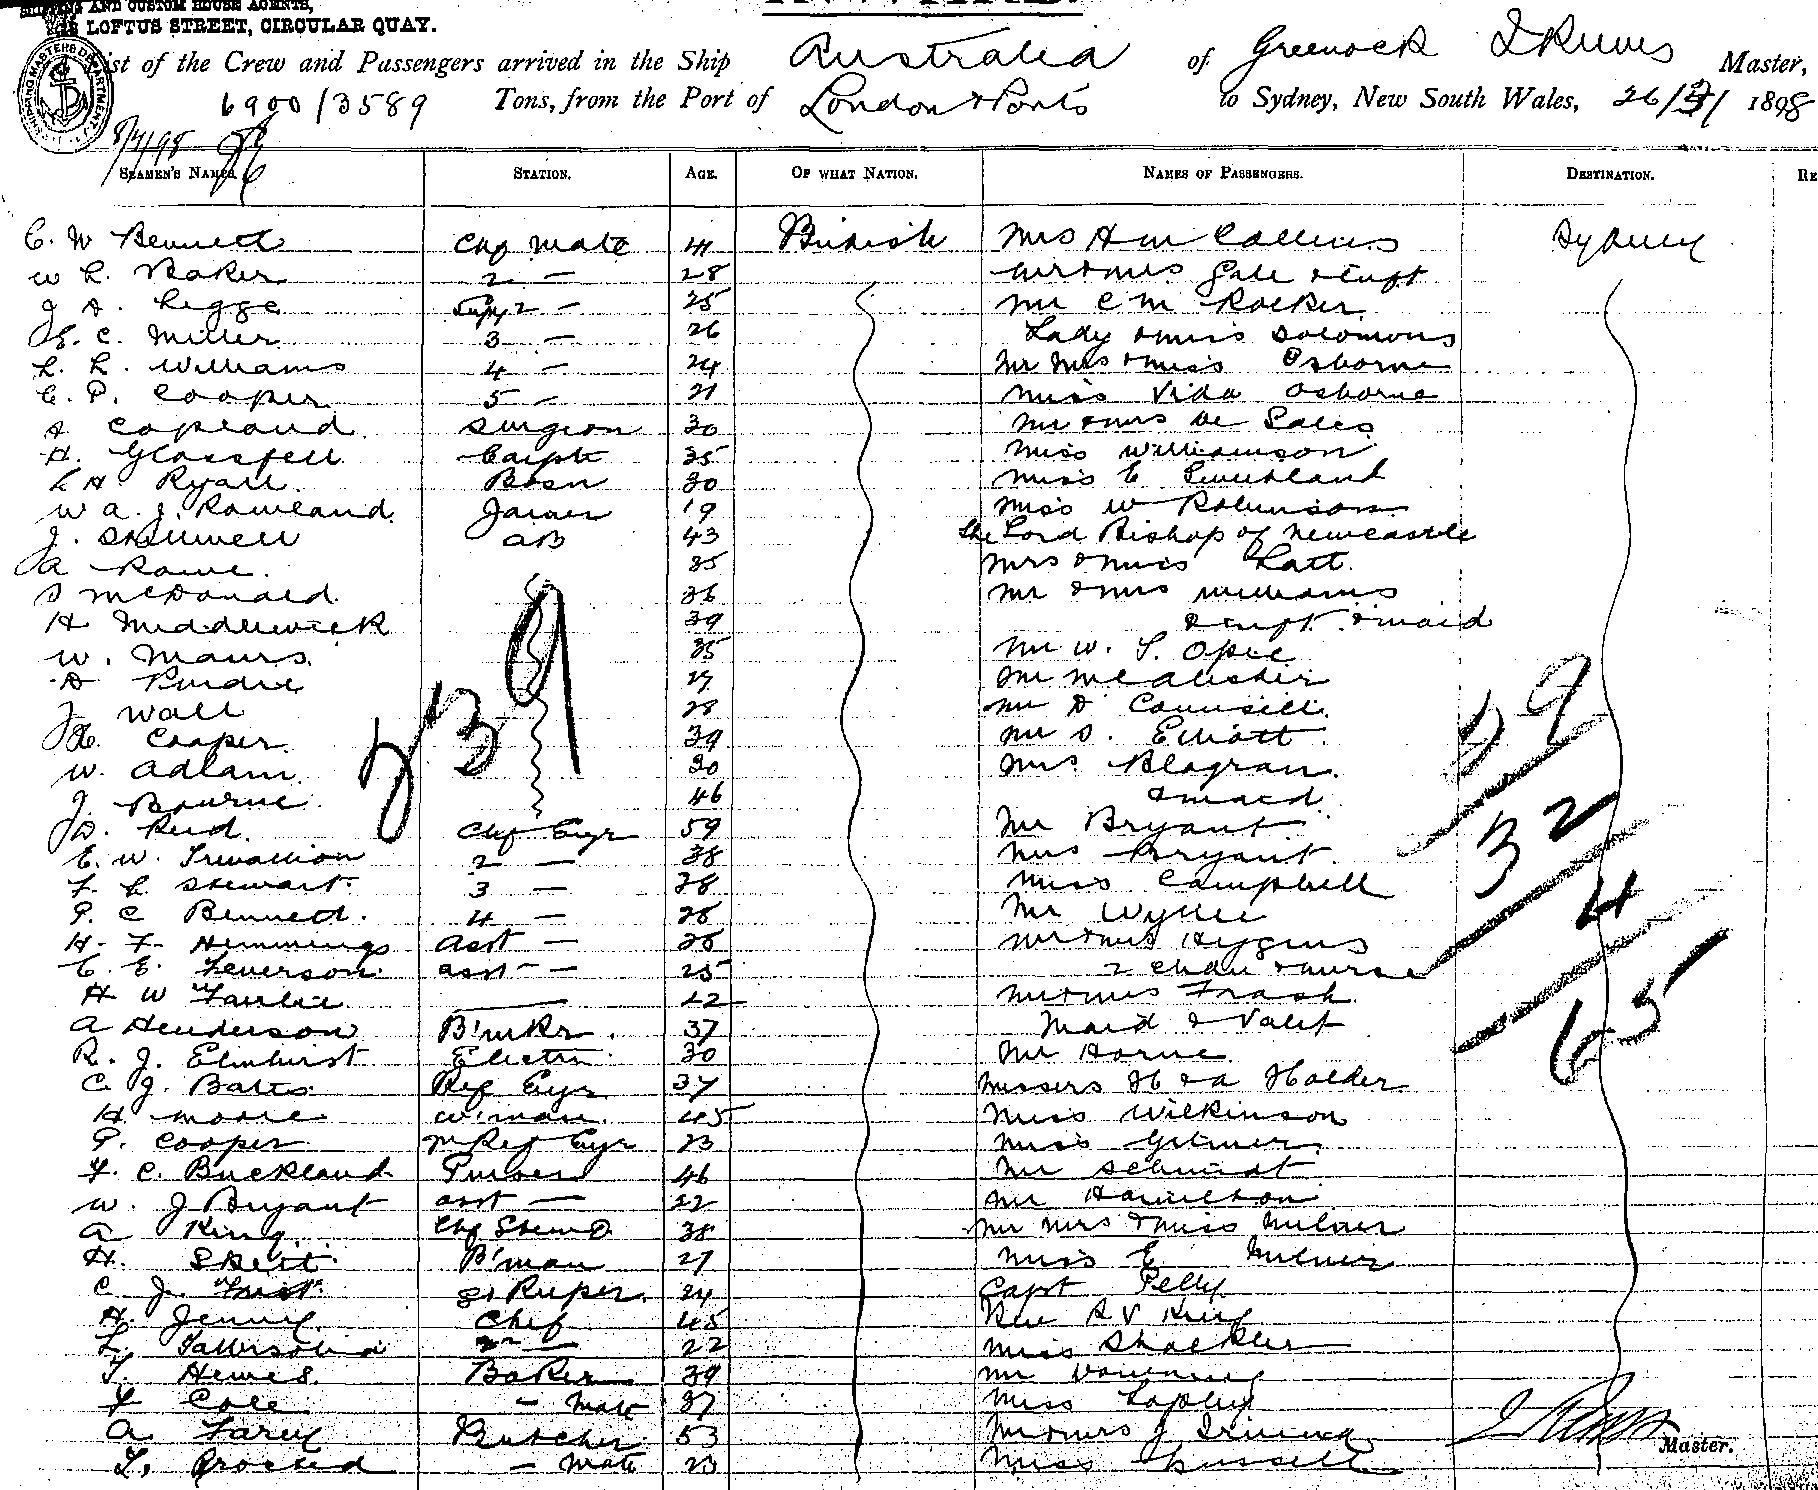 AND CUSTOM HOUSE AGENTS,
LOFTUS STREET, CIRCULAR QUAY.
SHIPPING MASTERS DEPARTMENT
ist of the Crew and Passengers arrived in the Ship Australia of Greenock Master,
6900/3589 Tons, from the Port of London & Ports to Sydney, New South Wales, 26/3/1898
8/4/98
SEAMEN'S NAMES. STATION. AGE. OF WHAT NATION. NAMES OF PASSENGERS. DESTINATION. RE
C. W Bennett Chf Mate 41 British Mrs H M Collins Sydney
W L. Baker 2 — 28 Mr & Mrs Gale & Inft
J A. Legge Supy 2 — 25 Mr C M Rocker
E. C. Miller 3 — 26 Lady & Miss Solomons
L. L. Williams 4 — 24 Mr Mrs & Miss Osborne
C. P. Cooper 5 — 21 Miss Vida Osborne
A Copeland Surgeon 30 Mr & Mrs De Sales
H. Glassfell Carptr 35 Miss Williamson
L H Ryall Bosn 30 Miss E
W A. J. Rowland Joiner 19 Miss W Robinson
J. Skilwell AB 43 The Lord Bishop of Newcastle
A Rowe 35 Mrs & Miss Latt.
D McDonald 36 Mr & Mrs Williams
H Middlewick 39 & Inft & maid
W. 35 Mr W. S. Opie
A Purdie 27 Mr McAlister
J Wall 28 Mr D Counsell
H. Cooper 39 Mr S. Elliott
W. Adlam 30 Mrs Blagran
J. Bourne 46 & maid
239
29
32
4
65
D. Reid Chf Engr 59 Mr Bryant
E. W. Trevallion 2 — 38 Mrs Bryant
F. C Stewart 3 — 28 Miss Campbell
P. C Bennett 4 — 26 Mr Wyllie
H. F. Hemmings Asst — 26 Mr & Mrs Hygins
C. E. Leverson Asst — 25 2 chdn & nurse
H W Fairlie — 22 Mr & Mrs Frash
A Henderson B'mkr. 37 Maid & Valet
R. J. Elmhirst Electn 30 Mr Horne
C. J. Bates Ref Engr 37 Messers H & A Holder
H Moore W'man 45 Miss Wilkinson
P. Cooper Ref Engr 23 Miss Gilmer
F. C. Buckland Purser 46 Mr Schmidt
W. J Bryant Asst — 22 Mr Hamilton
A King Chf Stewd 38 Mr Mrs & Miss Milner
H. Skett B'man 27 Miss E Milner
C J. Trist 24 Capt Pelly
H. Jenny Chef 45 Rev R V King
L. 2nd — 22 Miss Shackler
T. Hewes Baker 39 Mr
F Cole — Mate 37 Miss Lapley
A Farey Butcher 53 Mr & Mrs J Irvine
T. — Mate 23 Miss Russell
Master.